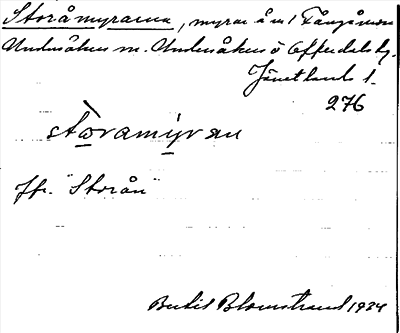 Storåmyrarna, myrar å n/
Undersåkers sn. Undersåkers o Offerdals tg.
Jämtlands l.
276
stòramyran
Jfr. "Storån"
Bertil Blomstrand 1934